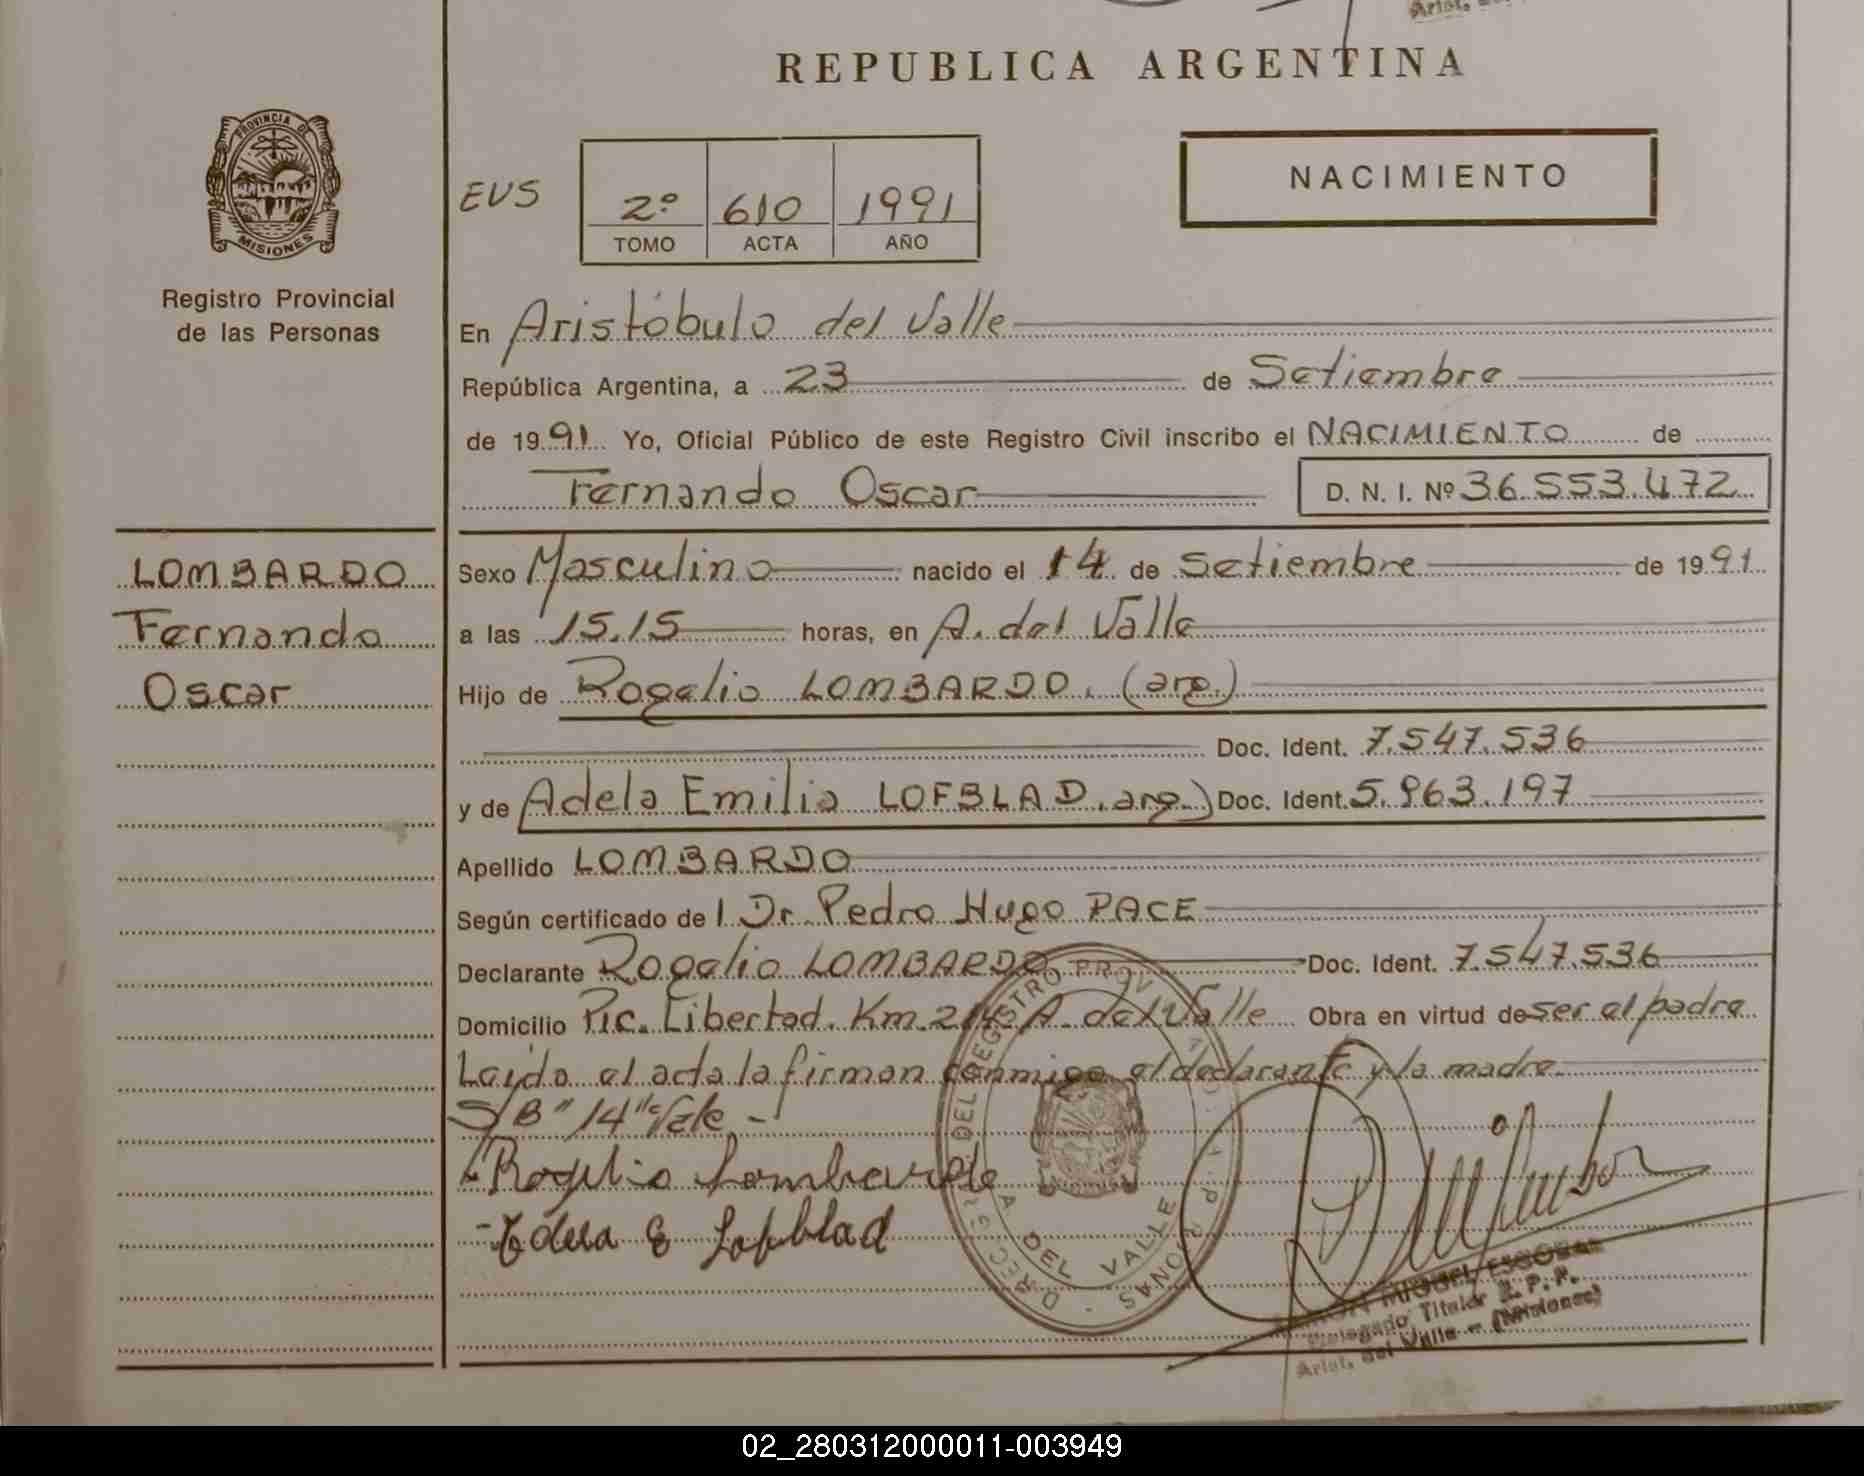 REPUBLICA ARGENTINA
PROVINCIA DE
MISIONES
Registro Provincial
de las Personas
EVS
2º 610 1991
TOMO ACTA AÑO
NACIMIENTO
En Aristóbulo del Valle
República Argentina, a 23 de Setiembre
de 1991 Yo, Oficial Público de este Registro Civil inscribo el NACIMIENTO de
Fernando Oscar D. N. I. Nº 36.553.472
LOMBARDO
Fernando
Oscar
Sexo Masculino nacido el 14 de Setiembre de 1991
a las 15.15 horas, en A. del Valle
Hijo de Rogelio LOMBARDO. (arg.)
Doc. Ident. 7.547.536
y de Adela Emilia LOFBLAD. arg.) Doc. Ident. 5.963.197
Apellido LOMBARDO
Según certificado de l Dr. Pedro Hugo PACE
Declarante Rogelio LOMBARDO Doc. Ident. 7.547.536
Domicilio Pic. Libertad. Km. A. del Valle Obra en virtud de ser el padre
Leída el acta la firman conmigo el declarante y la madre
S/B" 14" Vale -
Rogelio Lombardo
E Lofblad
DEL REGISTRO PROV
DEL VALLE
MIGUEL ESCOBAR
Delegado Titular R. P. P.
Arist. del Valle - (Misiones)
02_280312000011-003949